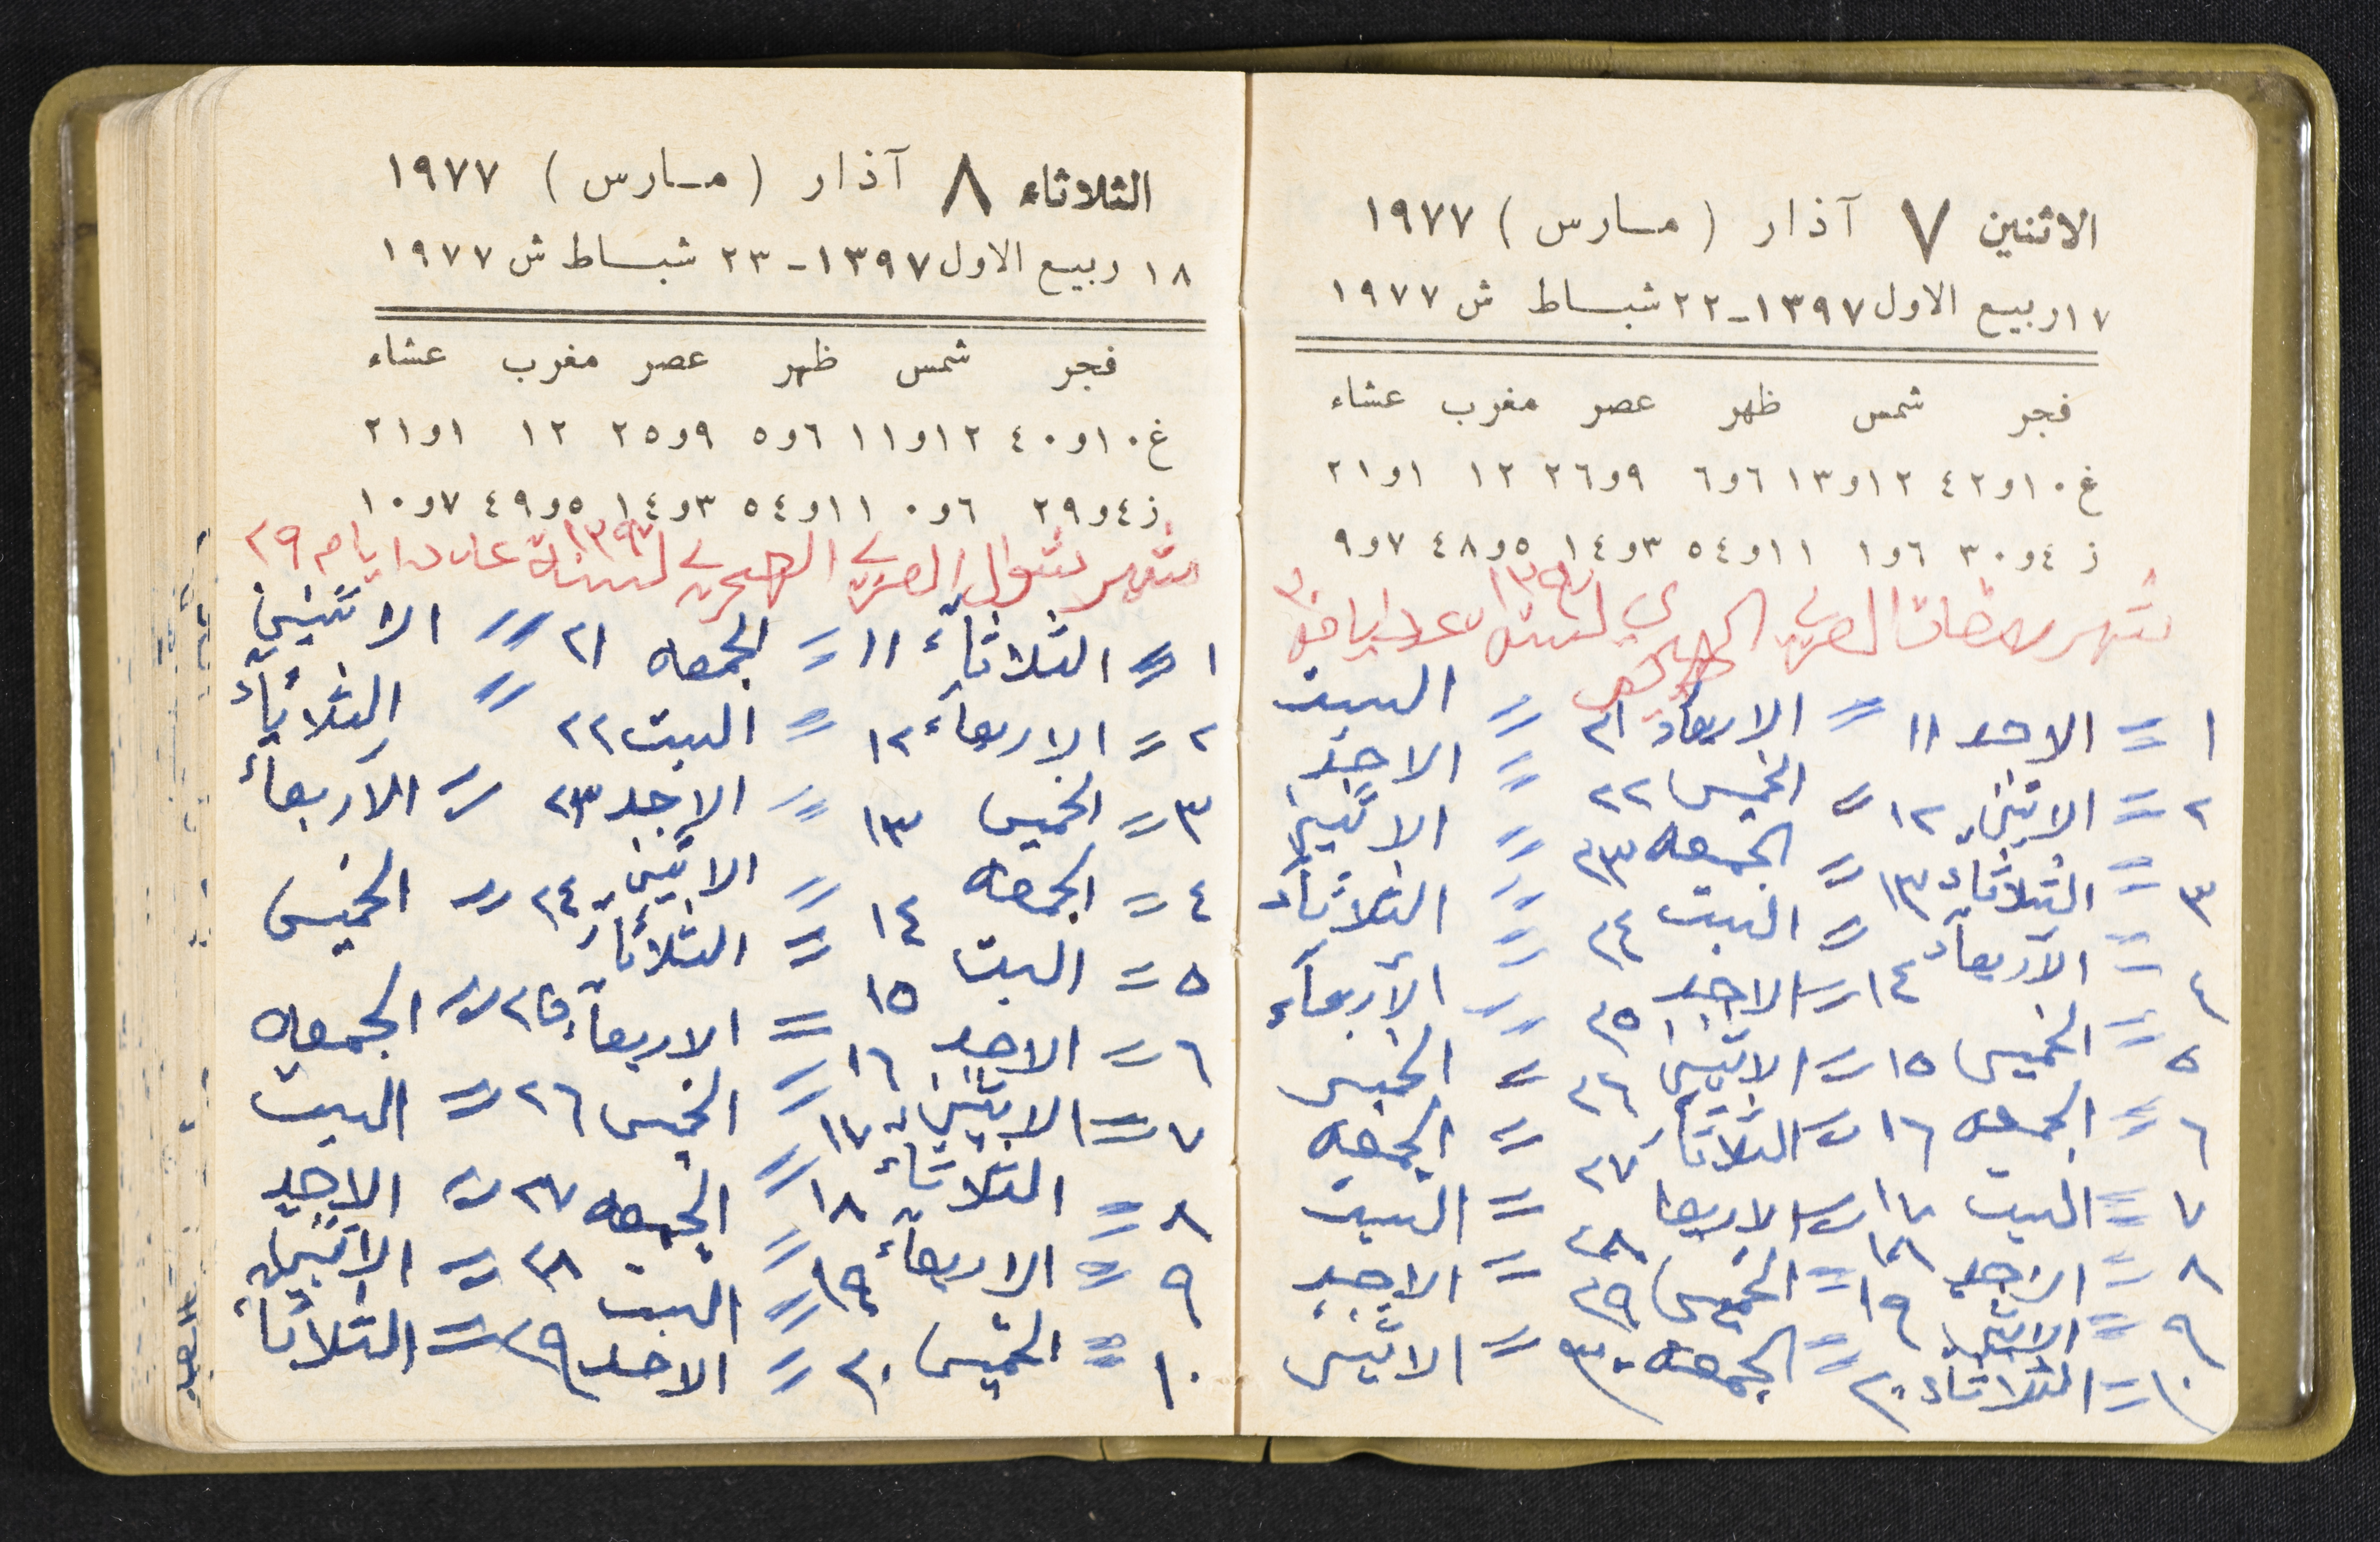 الاثنين ٧ آذار (مارس) ١٩٧٧
١٧ ربيع الاول ١٣٩٧ - ٢٢ شباط ش ١٩٧٧
فجر شمس ظهر عصر مغرب عشاء
غ ١٠و٤٢ ١٢و١٣ ٦و٦ ٩و٢٦ ١٢ ١و٢١
ز ٤و٣٠ ٦و١ ١١و٥٤ ٣و١٤ ٥و٤٨ ٧و٩
شهر رمضان العربي الهجري لسنة ١٣٩٧ عدد ايامه ٣٠
١ = الاحد ١١ = الاربعاء ٢١ = السبت
٢ = الاثنين ١٢ = الخميس ٢٢ = الاحد
٣ = الثلاثاء ١٣ = الجمعه ٢٣ = الاثنين
٤ = الاربعاء ١٤ = السبت ٢٤ = الثلاثاء
٥ = الخميس ١٥ = الاحد ٢٥ = الأربعاء
٦ = الجمعه ١٦ = الاثنين ٢٦ = الخميس
٧ = السبت ١٧ = الثلاثاء ٢٧ = الجمعه
٨ = الاحد ١٨ = الاربعا ٢٨ = السبت
٩ = الاثنين ١٩ = الخميس ٢٩ = الاحد
١٠ = الثلاثاء ٢٠ = الجمعه ٣٠ = الاثنين
الثلاثاء ٨ آذار (مارس) ١٩٧٧
١٨ ربيع الاول ١٣٩٧ - ٢٣ شباط ش ١٩٧٧
فجر شمس ظهر عصر مغرب عشاء
غ ١٠و٤٠ ١٢و١١ ٦و٥ ٩و٢٥ ١٢ ١و٢١
ز ٤و٢٩ ٦و٠ ١١و٥٤ ٣و١٤ ٥و٤٩ ٧و١٠
شهر شوال العربي الهجري لسنة ١٣٩٧ عدد ايام ٢٩
١ = الثلاثاء ١١ = الجمعه ٢١ = الاثنين
٢ = الاربعاء ١٢ = السبت ٢٢ = الثلاثاء
٣ = الخميس ١٣ = الاحد ٢٣ = الاربعاء
٤ = الجمعه ١٤ = الاثنين ٢٤ = الخميس
٥ = السبت ١٥ = الثلاثاء ٢٥ = الجمعه
٦ = الاحد ١٦ = الاربعاء ٢٦ = السبت
٧ = الاثنين ١٧ = الخميس ٢٧ = الاحد
٨ = الثلاثاء ١٨ = الجمعه ٢٨ = الاثنين
٩ = الاربعاء ١٩ = السبت ٢٩ = الثلاثاء
١٠ = الخميس ٢٠ = الاحد